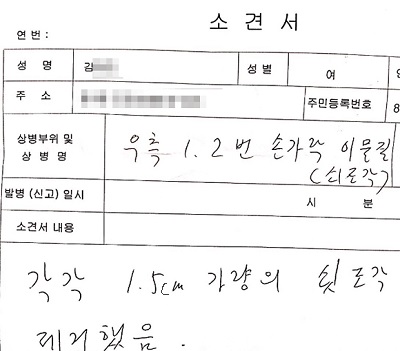 소 견 서
연 번 :
성 명 김 성 별 여
주 소 주민등록번호 8
상병부위 및 상 병 명 우측 1. 2번 손가락 이물질 (쇠조각)
발병 (신고) 일시 시 분
소견서 내용
각각 1.5cm 가량의 쇳조각
제거했음.